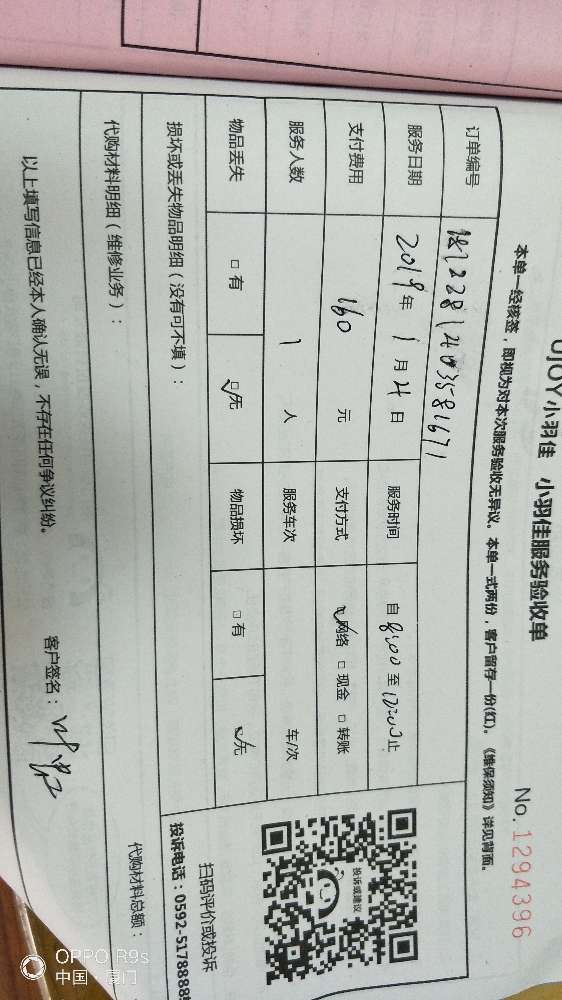 UJOY小羽佳 小羽佳服务验收单
No. 1294396
本单一经核签，即视为对本次服务验收无异议。本单一式两份，客户留存一份(红)。《维保须知》详见背面。
订单编号
服务日期 2019年 1月 21日 服务时间 自 8:00 至 止
支付费用 160 元 支付方式 ☑网络 □现金 □转账
服务人数 1 人 服务车次 车/次
物品丢失 □有 ☑无 物品损坏 □有 ☑无
损坏或丢失物品明细（没有可不填）：
扫码评价或投诉
投诉电话：0592-5178888
投诉或建议
代购材料明细（维修业务）：
代购材料总额：
以上填写信息已经本人确认无误，不存在任何争议纠纷。
客户签名：
OPPO R9s
中国·厦门